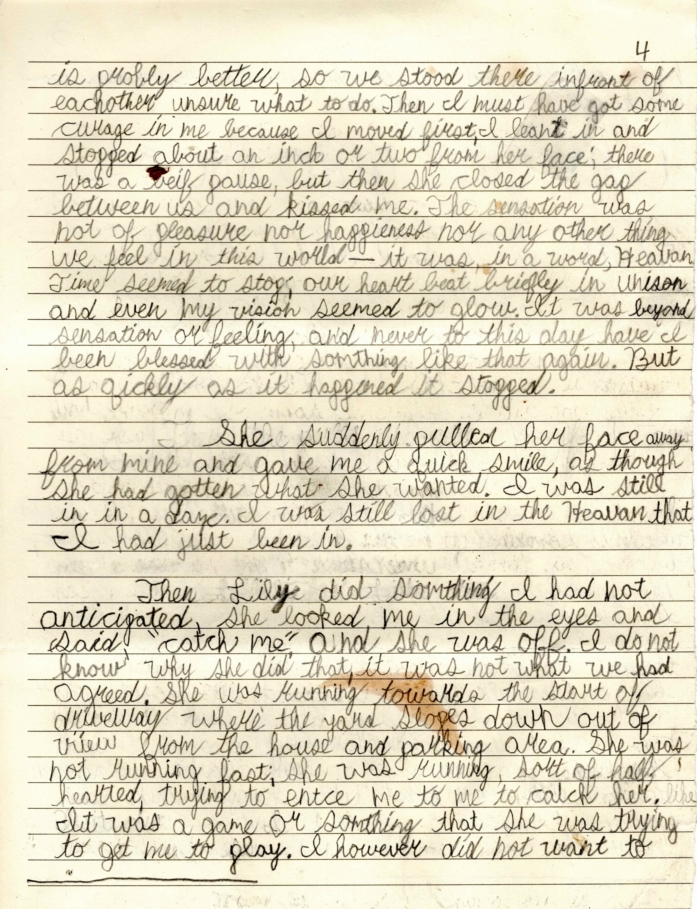 4
is probly better, so we stood there infront of
eachother unsure what to do. Then I must have got some
curage in me because I moved first, I leant in and
stopped about an inch or two from her face; there
was a beif pause, but then she closed the gap
between us and kissed me. The sensation was
not of pleasure nor happieness nor any other thing
we feel in this world — it was, in a word, Heavan
Time seemed to stop, our heart beat briefly in unison
and even my vision seemed to glow. It was beyond
sensation or feeling, and never to this day have I
been blessed with somthing like that again. But
as qickly as it happened it stopped.
She suddenly pulled her face away
from mine and gave me a quick smile, as though
she had gotten what she wanted. I was still
in in a daze. I was still lost in the Heavan that
I had just been in.
Then Lilye did somthing I had not
anticipated, she looked me in the eyes and
said, "catch me" and she was off. I do not
know why she did that, it was not what we had
agreed. She was running towards the start of
driveway where the yard slopes down out of
view from the house and parking area. She was
not running fast; she was running, sort of half
hearted, trying to entce me to me to catch her.
It was a game or somthing that she was trying
to get me to play. I however did not want to